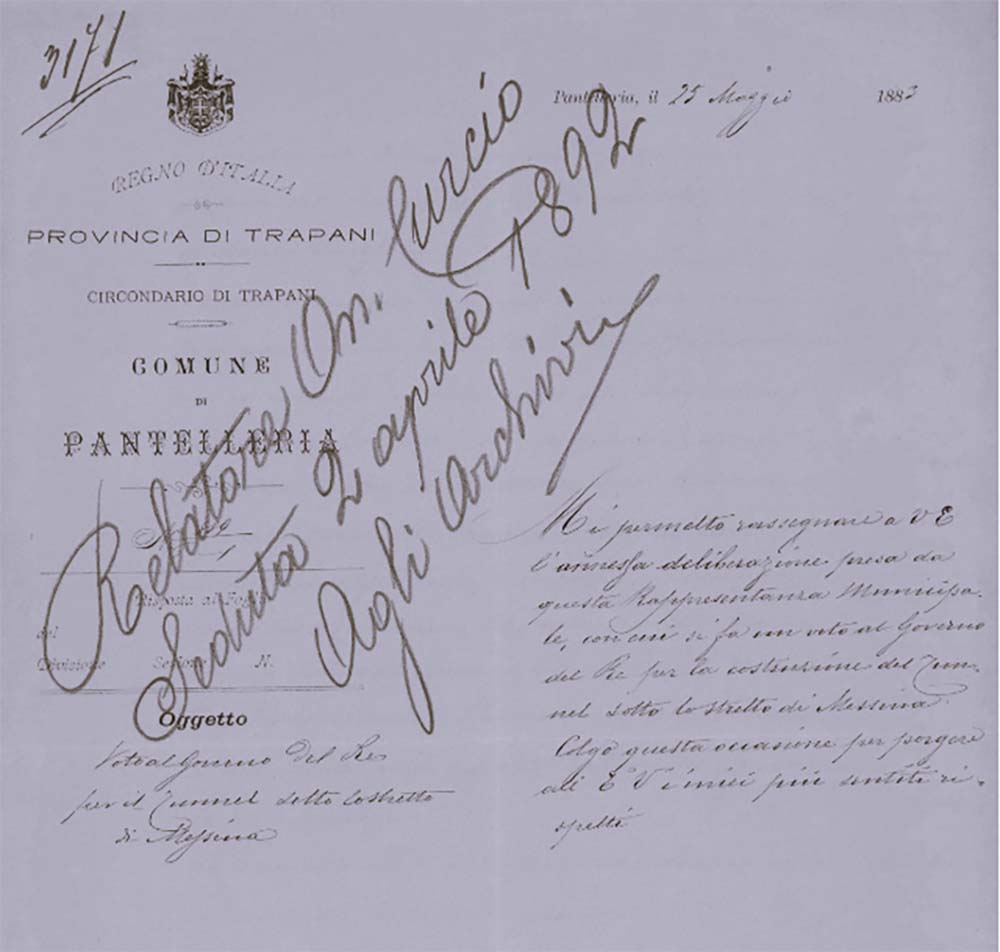 3171
REGNO D'ITALIA
PROVINCIA DI TRAPANI
CIRCONDARIO DI TRAPANI
COMUNE
DI
PANTELLERIA
Risposta al Foglio
del
Divisione Sezione N.
Oggetto
Voto al Governo del Re
per il Tunnel sotto lo stretto
di Messina
Relatore On. Curcio
Seduta 2 aprile 1892
Agli Archivi
Pantelleria, il 25 Maggio 1883
Mi permetto rassegnare a V E
l'annessa deliberazione presa da
questa Rappresentanza Municipa-
le, con cui si fa un voto al Governo
del Re per la costruzione del Tun-
nel sotto lo stretto di Messina.
Colgo questa occasione per porgere
all' E V i miei più sentiti ri-
spetti